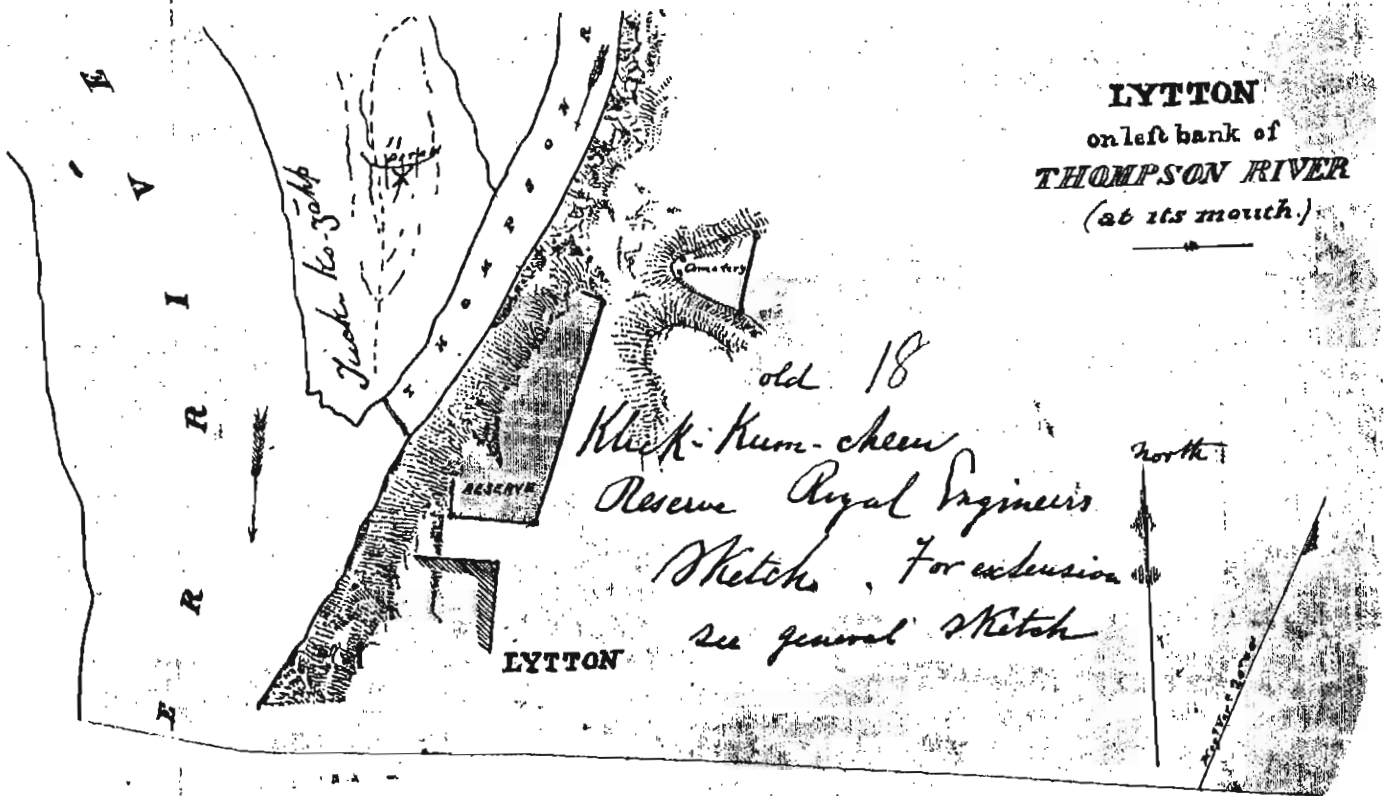 LYTTON
on left bank of
THOMPSON RIVER
(at its mouth.)
E
V
I
R
R
E
THOMPSON R
11
Cemetery
old 18
Kluck-Kum-cheen
Reserve Royal Engineers
Sketch. For extension
see general sketch
RESERVE
LYTTON
North